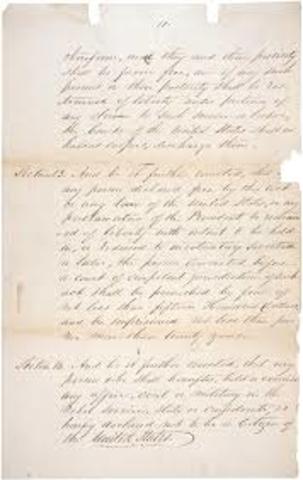 therefrom, and they and their posterity
shall be forever free, and if any such
persons or their posterity shall be res-
trained of liberty under pretence of
any claim to such service or labor,
the Courts of the United States shall on
habeas corpus, discharge them.
Section 13. And be it further enacted, that if
any person declared free by this Act
or any law of the United States, or any
proclamation of the President be restrain-
ed of liberty with intent to be held
in or reduced to involuntary servitude
or labor, the person convicted before
a court of competent jurisdiction of such
act shall be punished by fine of
not less than fifteen Hundred Dollars
and be imprisoned not less than five
nor more than twenty years.
Section 14. And be it further enacted, that every
person who shall hereafter hold or exercise
any office, civil or military in the
rebel service, State or confederate, is
hereby declared not to be a citizen of
the United States.